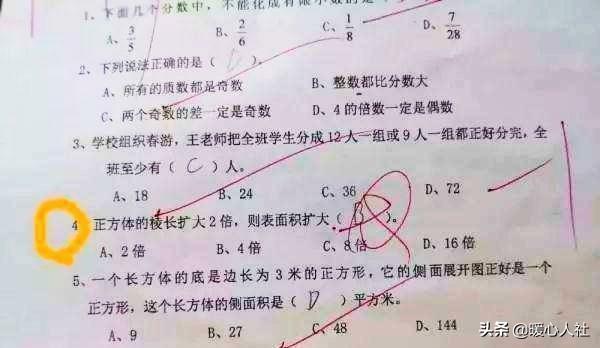 1、下面几个分数中，不能化成有限小数的是
A、3/5 B、2/6 C、1/8 D、7/28
2、下列说法正确的是（ D ）。
A、所有的质数都是奇数 B、整数都比分数大
C、两个奇数的差一定是奇数 D、4的倍数一定是偶数
3、学校组织春游，王老师把全班学生分成12人一组或9人一组都正好分完，全
班至少有（ C ）人。
A、18 B、24 C、36 D、72
4、正方体的棱长扩大2倍，则表面积扩大（ B ）。
A、2倍 B、4倍 C、8倍 D、16倍
5、一个长方体的底是边长为3米的正方形，它的侧面展开图正好是一个
正方形，这个长方体的侧面积是（ D ）平方米。
A、9 B、27 C、48 D、144
头条 @暖心人社